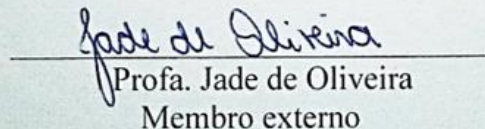 Jade de Oliveira
Profa. Jade de Oliveira
Membro externo